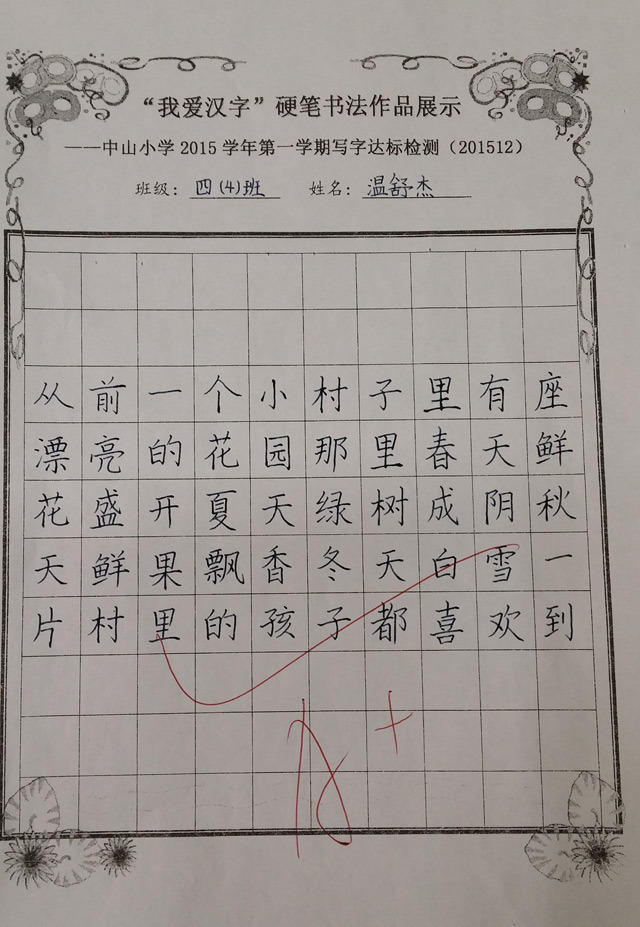 “我爱汉字”硬笔书法作品展示
——中山小学2015学年第一学期写字达标检测（201512）
班级：四(4)班 姓名：温舒杰
从前一个小村子里有座
漂亮的花园那里春天鲜
花盛开夏天绿树成阴秋
天鲜果飘香冬天白雪一
片村里的孩子都喜欢到